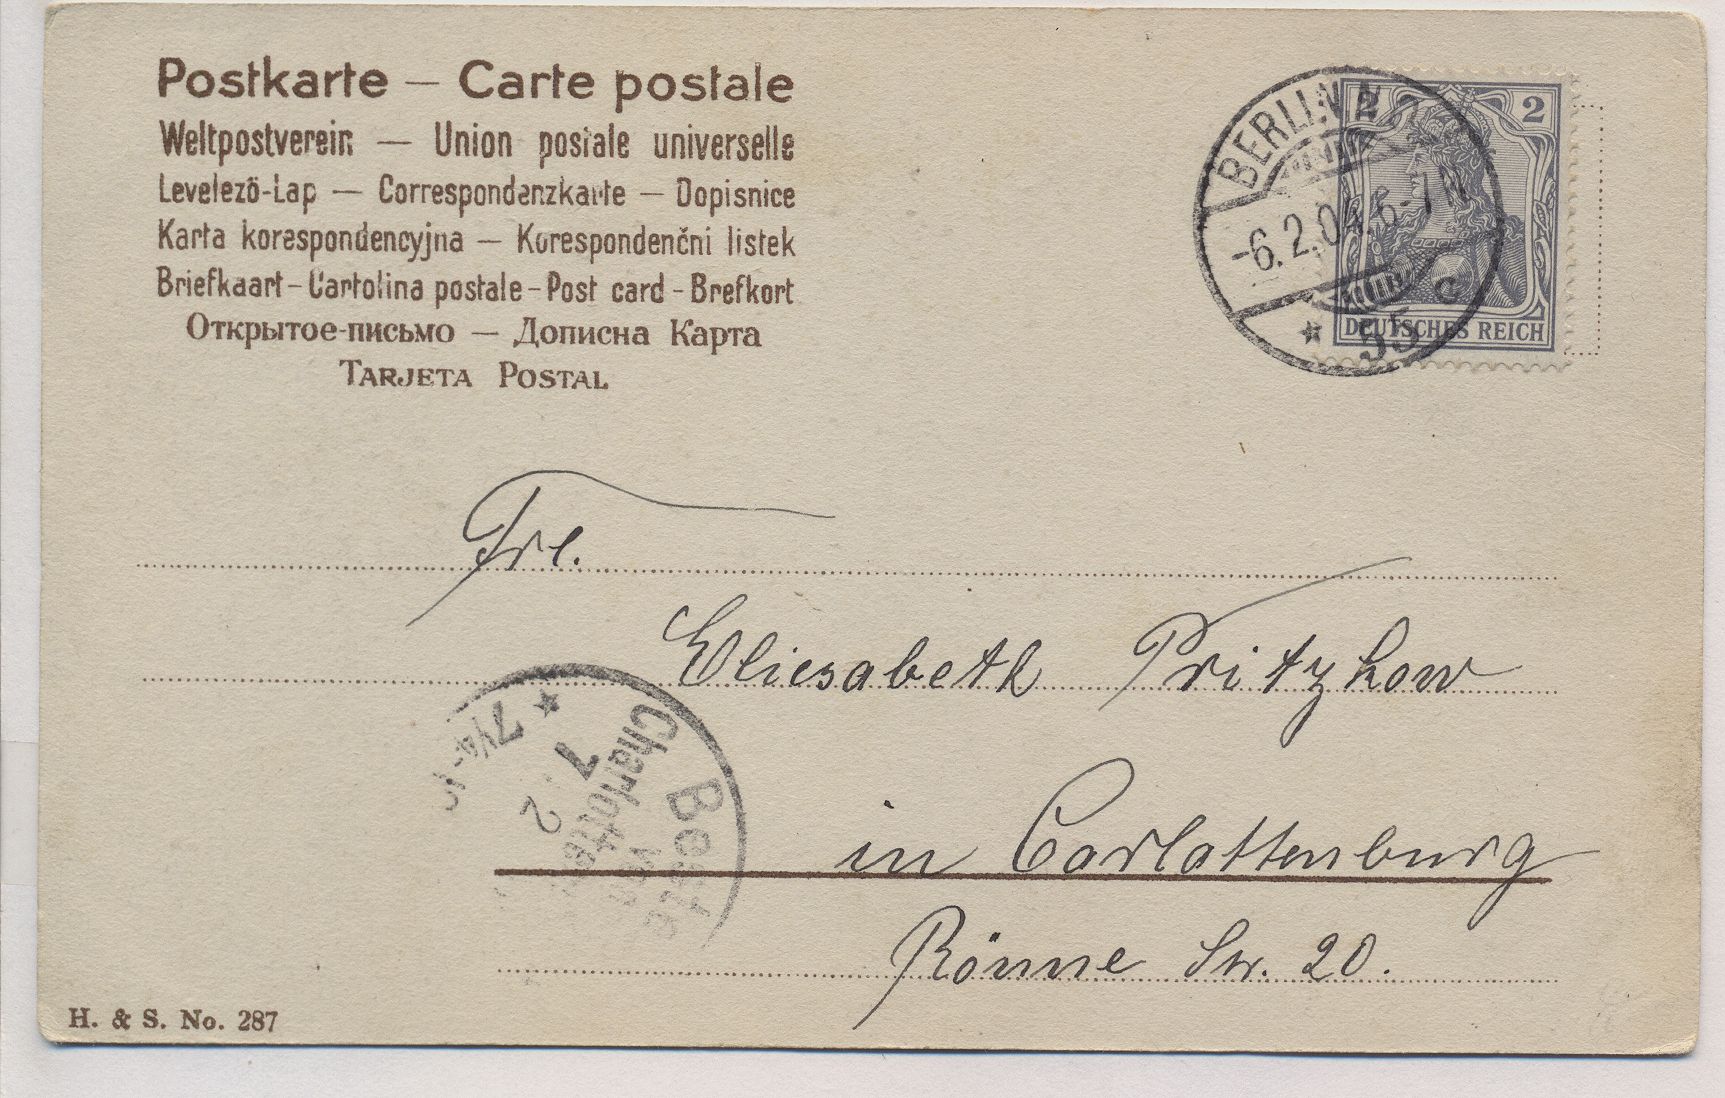 Postkarte – Carte postale
Weltpostverein – Union postale universelle
Levelezö-Lap – Correspondenzkarte – Dopisnice
Karta korespondencyjna – Korespondenčni listek
Briefkaart – Cartolina postale – Post card – Brefkort
Открытое-письмо – Дописна Карта
TARJETA POSTAL
BERLIN N
-6.2.04. 6-7 N
* 55 c
2 2
DEUTSCHES REICH
Frl.
Eliesabeth Pritzkow
in Carlottenburg
Rönne Str. 20.
Bestellt
vom
Charlotten
7 2
* 7¼-
H. & S. No. 287